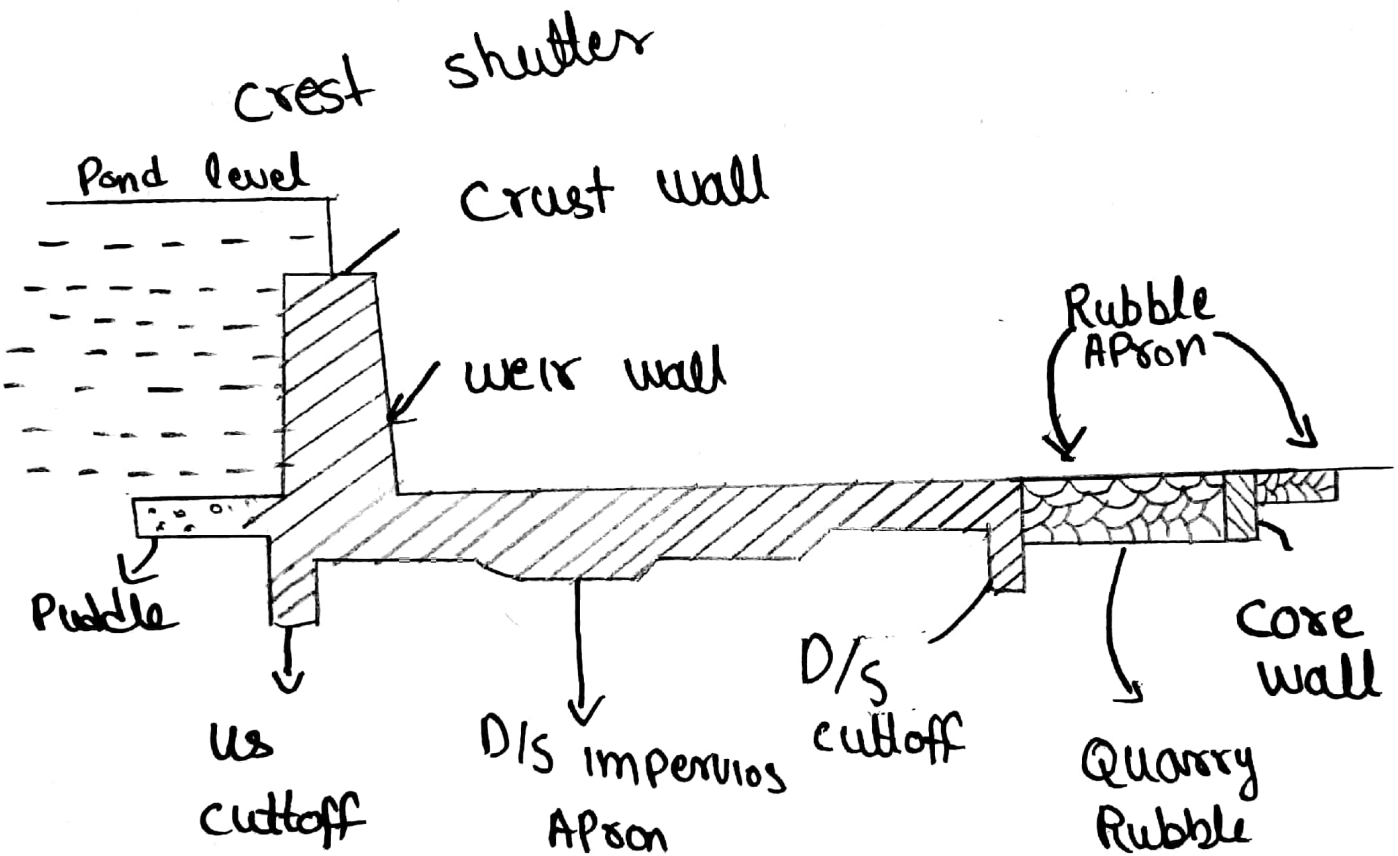 Crest shutter
Pond level
Crust wall
weir wall
Rubble
APron
Puddle
Us
cuttoff
D/S impervios
APron
D/S
cuttoff
Quarry
Rubble
Core
wall